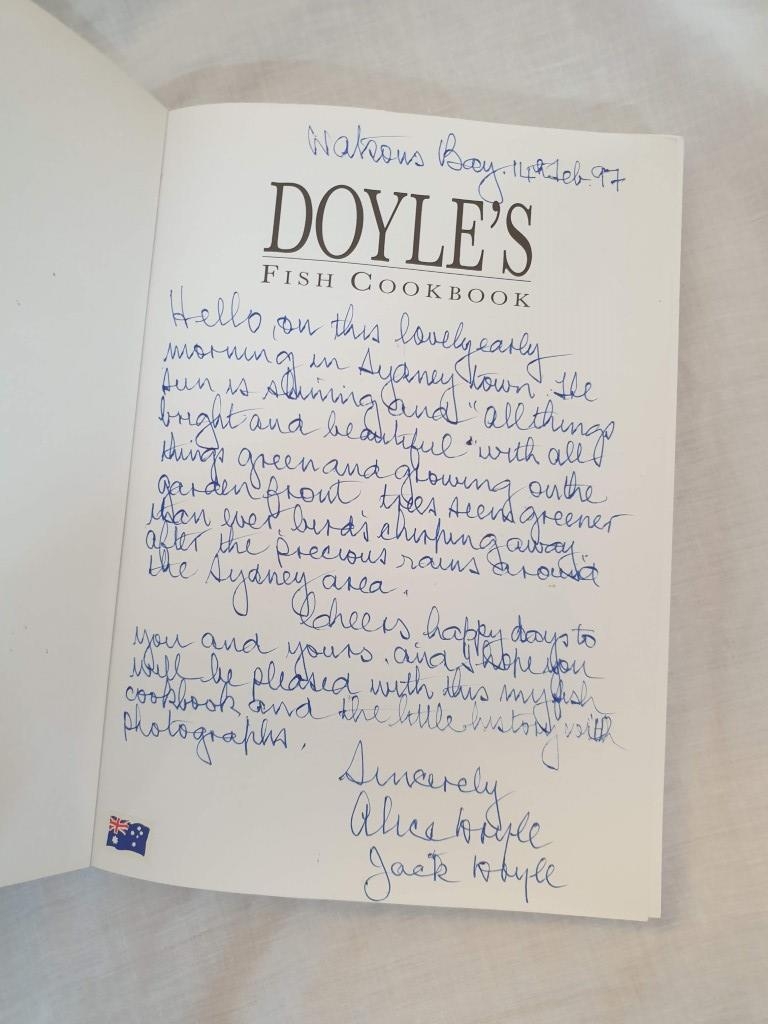 Watsons Bay. 14th Feb. 97
DOYLE'S
FISH COOKBOOK
Hello, on this lovely early
morning in Sydney town. The
sun is shining and "all things
bright and beautiful" with all
things green and growing on the
garden front trees seem greener
than ever. birds chirping away.
after the precious rains around
the Sydney area.
Cheers, happy days to
you and yours. and I hope you
will be pleased with this my fish
cookbook and the little history with
photographs.
Sincerely
Alice Doyle
Jack Doyle